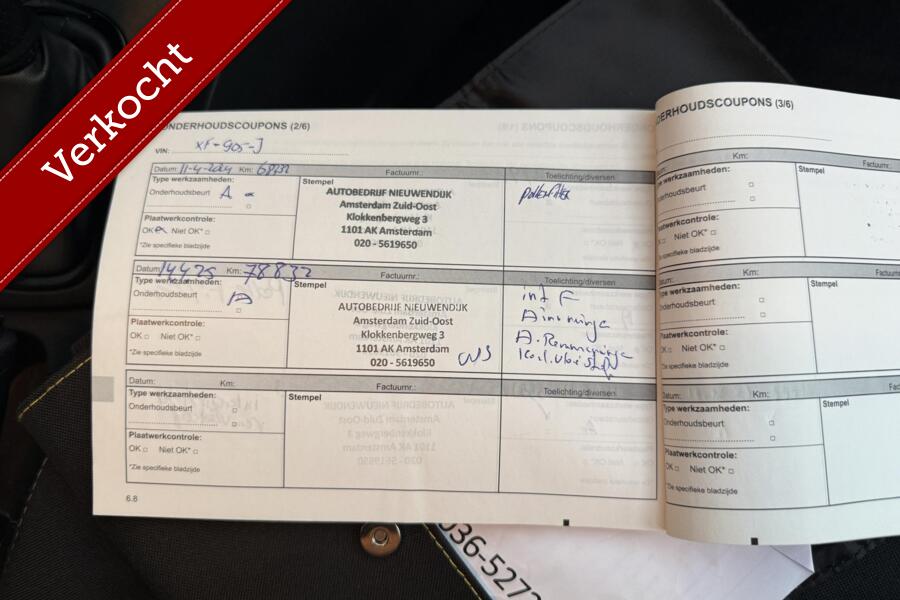 Verkocht
ONDERHOUDSCOUPONS (2/6)
VIN: XF-905-J
Datum: 11-4-2024 Km: 68732 Factuurnr.: Toelichting/diversen
Type werkzaamheden:
Onderhoudsbeurt A
Plaatwerkcontrole:
OK Niet OK*
*Zie specifieke bladzijde
Stempel
AUTOBEDRIJF NIEUWENDIJK
Amsterdam Zuid-Oost
Klokkenbergweg 3
1101 AK Amsterdam
020 - 5619650
pollenfilter
Datum: 14425 Km: 78832 Factuurnr.: Toelichting/diversen
Type werkzaamheden:
Onderhoudsbeurt A
Plaatwerkcontrole:
OK Niet OK*
*Zie specifieke bladzijde
Stempel
AUTOBEDRIJF NIEUWENDIJK
Amsterdam Zuid-Oost
Klokkenbergweg 3
1101 AK Amsterdam
020 - 5619650
int F
Datum: Km: Factuurnr.: Toelichting/diversen
Type werkzaamheden:
Onderhoudsbeurt
Plaatwerkcontrole:
OK Niet OK*
*Zie specifieke bladzijde
Stempel
6.8
DERHOUDSCOUPONS (3/6)
Km:
werkzaamheden:
Onderhoudsbeurt
Plaatwerkcontrole:
OK Niet OK*
*Zie specifieke bladzijde
Stempel
Km: Factuurn
werkzaamheden:
Onderhoudsbeurt
Plaatwerkcontrole:
OK Niet OK*
*Zie specifieke bladzijde
Stempel
Datum: Km: Factuu
Type werkzaamheden:
Onderhoudsbeurt
Plaatwerkcontrole:
OK Niet OK*
*Zie specifieke bladzijde
Stempel
036-5272